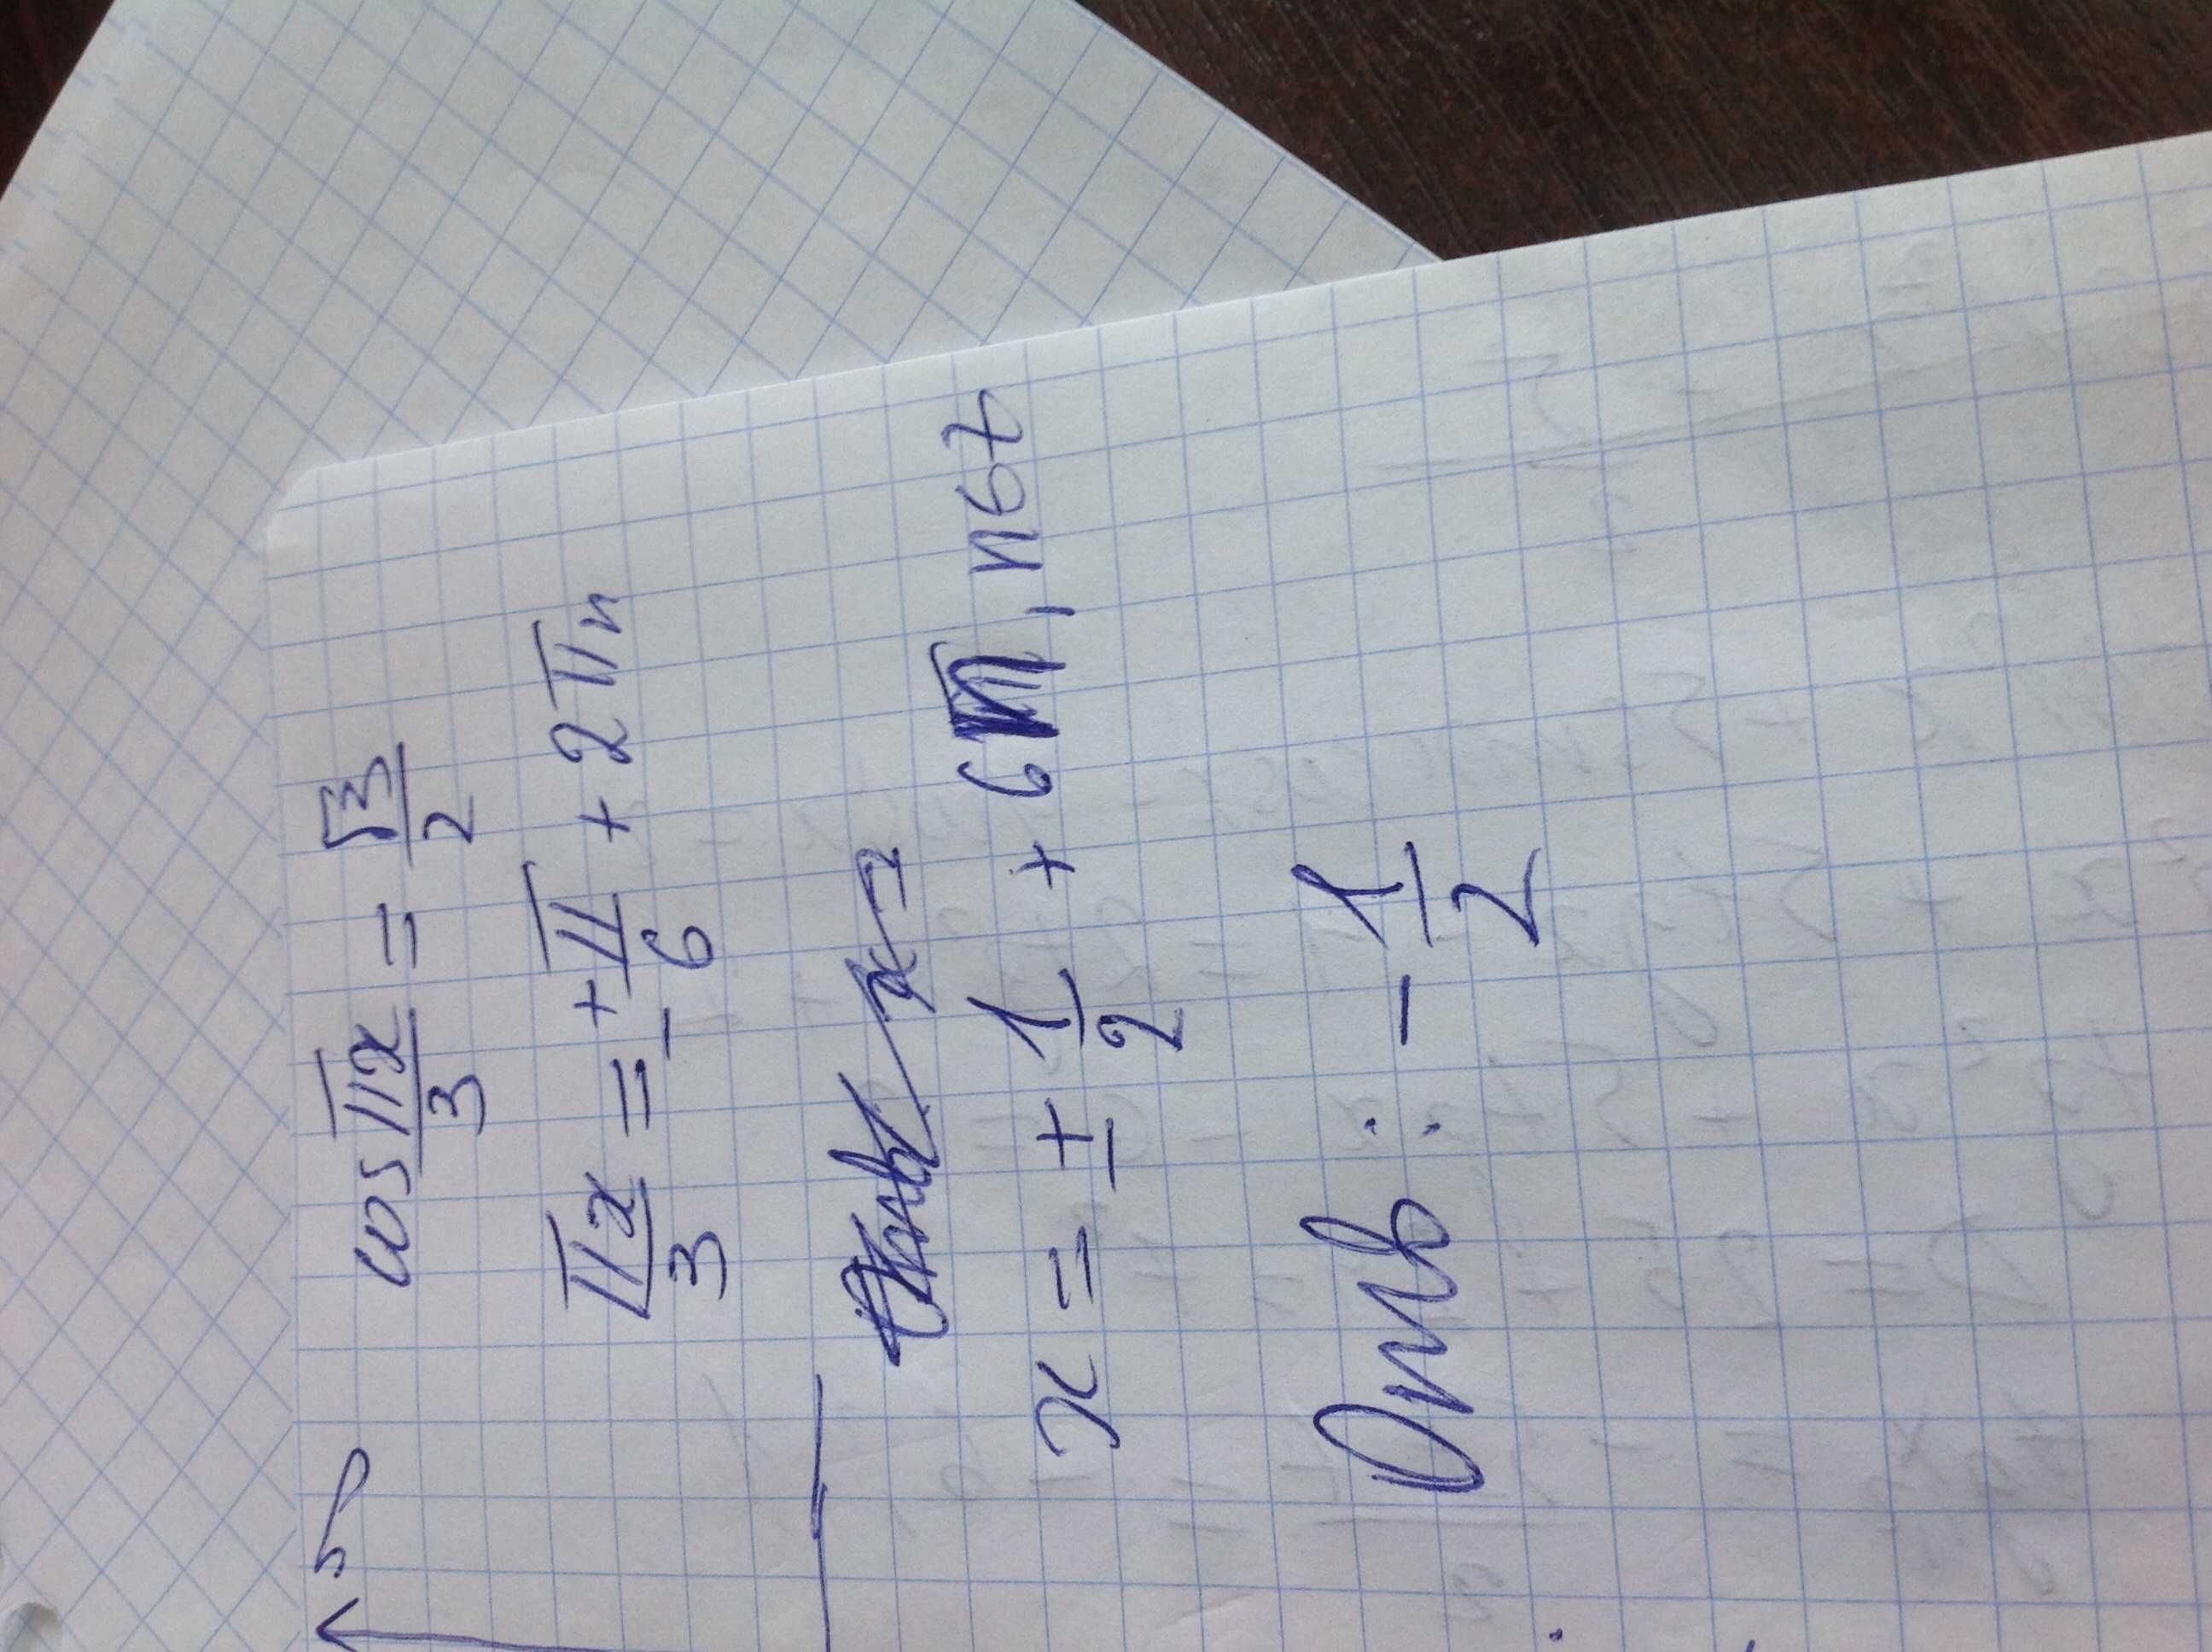 cos πx/3 = √3/2
πx/3 = ± π/6 + 2πn
x = ± 1/2 + 6n, n∈Z
Отв: - 1/2